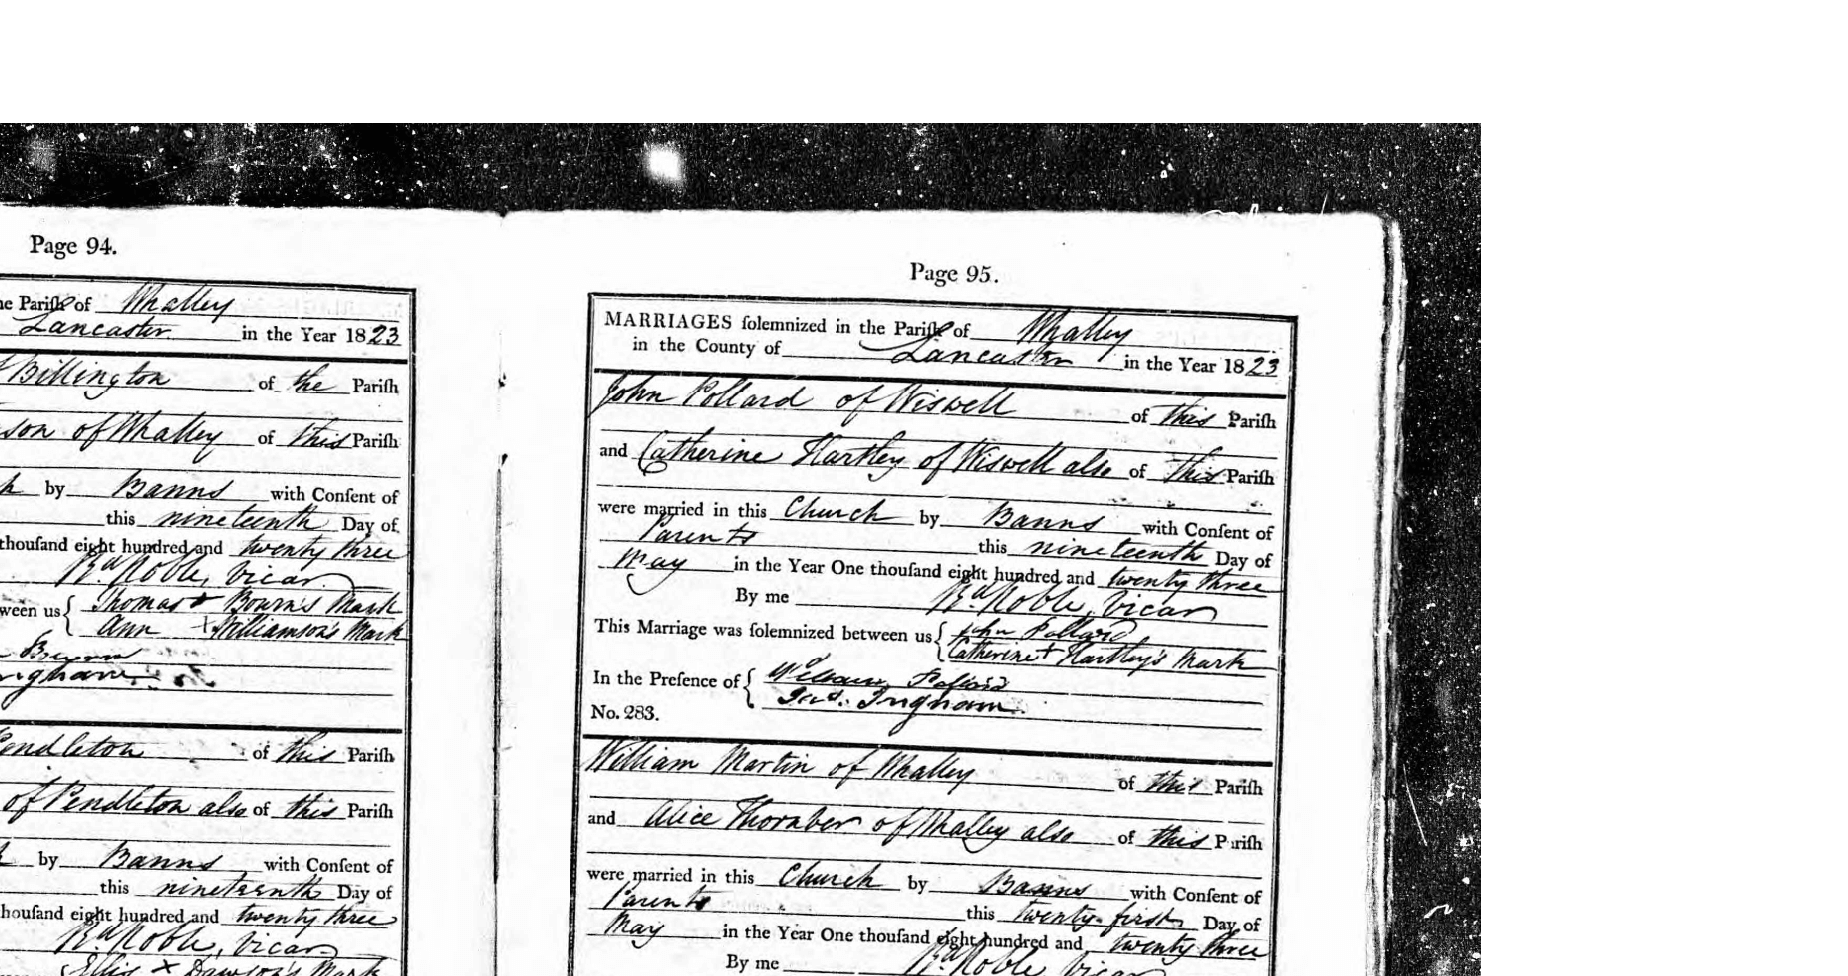 Page 94.
he Parish of Whalley
Lancaster in the Year 1823
Billington of the Parish
son of Whalley of this Parish
h by Banns with Consent of
this nineteenth Day of
thousand eight hundred and twenty three
Rd. Noble, Vicar
ween us { Thomas + Bourn's Mark
Ann + Williamson's Mark
ngham
Pendleton of this Parish
of Pendleton also of this Parish
by Banns with Consent of
this nineteenth Day of
housand eight hundred and twenty three
Rd. Noble, Vicar
Ellis + Dawson's Mark
Page 95.
MARRIAGES solemnized in the Parish of Whalley
in the County of Lancaster in the Year 1823
John Pollard of Wiswell of this Parish
and Catherine Hartley of Wiswell also of this Parish
were married in this Church by Banns with Consent of
Parents this nineteenth Day of
May in the Year One thousand eight hundred and twenty three
By me Rd. Noble, Vicar
This Marriage was solemnized between us { John Pollard,
Catherine + Hartley's Mark
In the Presence of { William Pollard
Ingham
No. 283.
William Martin of Whalley of this Parish
and Alice Thornber of Whalley also of this Parish
were married in this Church by Banns with Consent of
Parents this twenty-first Day of
May in the Year One thousand eight hundred and twenty three
By me Rd. Noble, Vicar